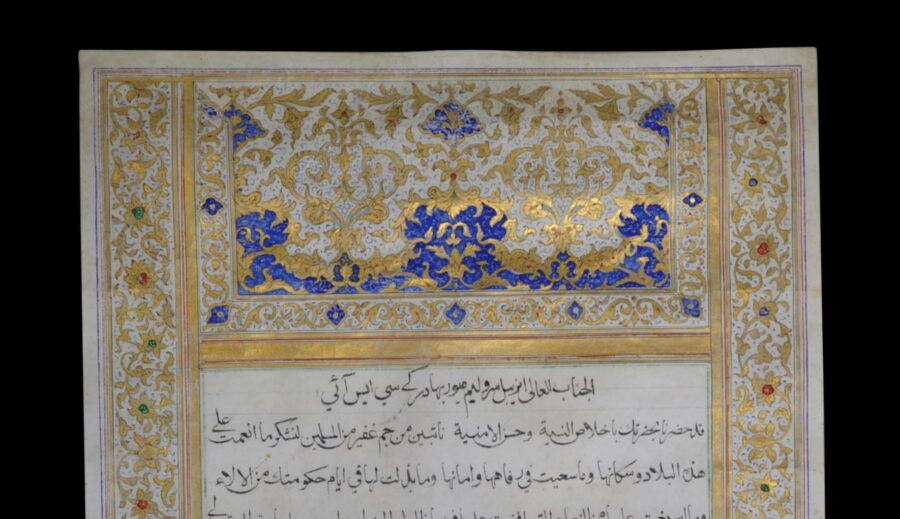 الجناب العالي انريبل سر وليم ميور بهادر كے سي ايس آئي
قد حضرنا بحضرتك باخلاص النية وحسن الامنية نائبين من جم غفير من المسلمين لنشكر ما انعمت على
هذه البلاد وسكانها وما سعيت في رفاهها وامانها وما بذلت لها في ايام حكومتك من الالاء